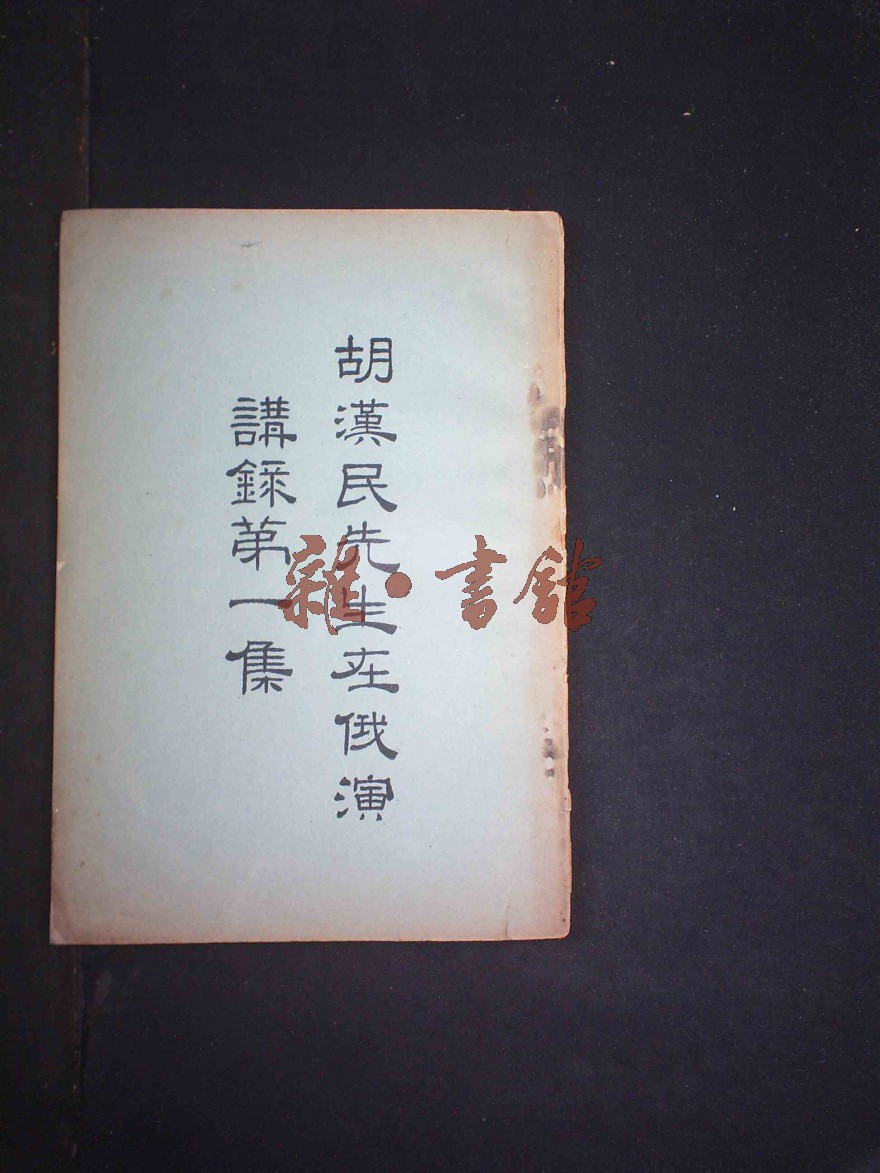 胡漢民先生在俄演
講錄第一集
雜·書館